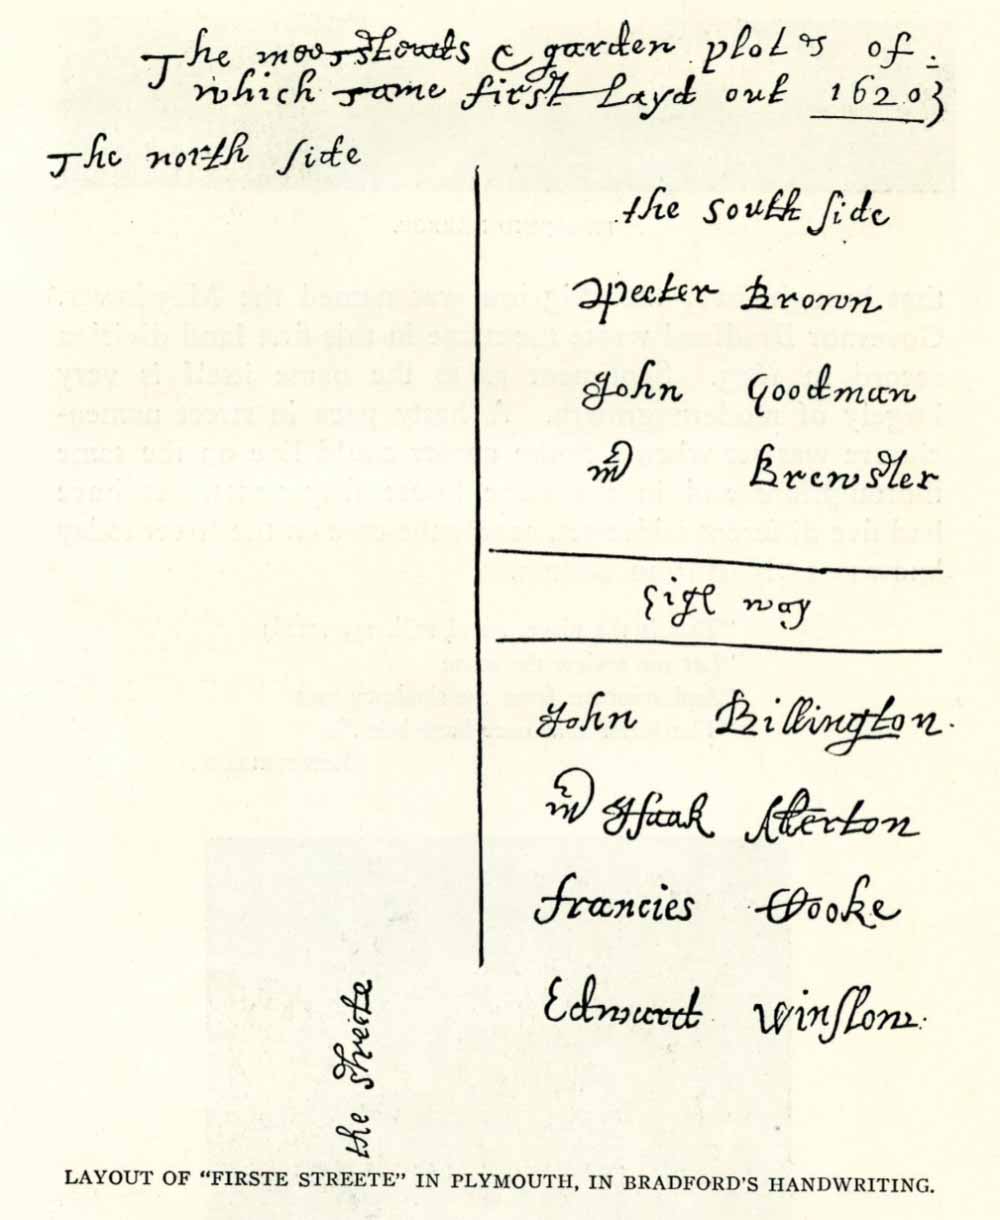 The meersteads & garden plotes of
which came first layd out 1620}
The north side
the south side
Peeter Brown
John Goodman
mr Brewster
high way
John Billington.
mr Isaak Alerton
francies Cooke
Edward Winslow.
the streete
LAYOUT OF "FIRSTE STREETE" IN PLYMOUTH, IN BRADFORD'S HANDWRITING.